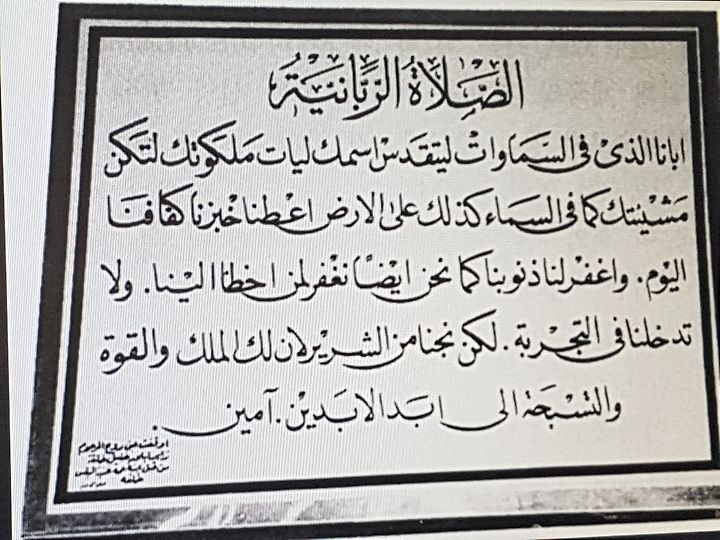 الصَّلَاةُ الرَّبَّانِيَّةُ
ابانا الذى فى السَّمَاواتْ ليتقدسْ اسمك ليات مَلكوتك لتكن
مَشيْئتك كما فى السماء كذلك على الارض اعْطنا خبزنا كفافنا
اليوْم. واغفرْ لنا ذنوبنا كما نحن ايضًا نغْفر لمن اخطا اليْنا. ولا
تدخلنا فى التجْربة. لكن نجنا من الشرير لان لك الملك والقوة
والتسْبحَة الى ابَد الابَديْن. آمين.
اوقفت عن روح المرحوم
خلفه